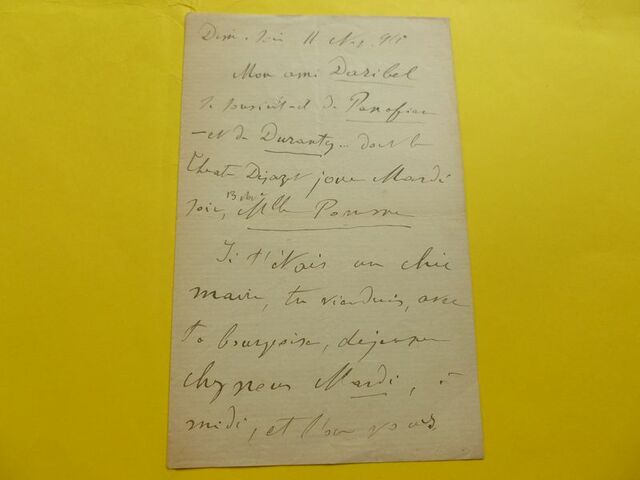 Dim. soir 11 9bre
Mon ami Daribel
te souvient-il de
et de Duranty... dont le
Théâtre Dejazet joue Mardi
soir, 13 Mlle Pomme
Si t'étais un chic
maire, tu viendrais, avec
ta bourgeoise, déjeuner
chez nous Mardi, à
midi, et l'on vous